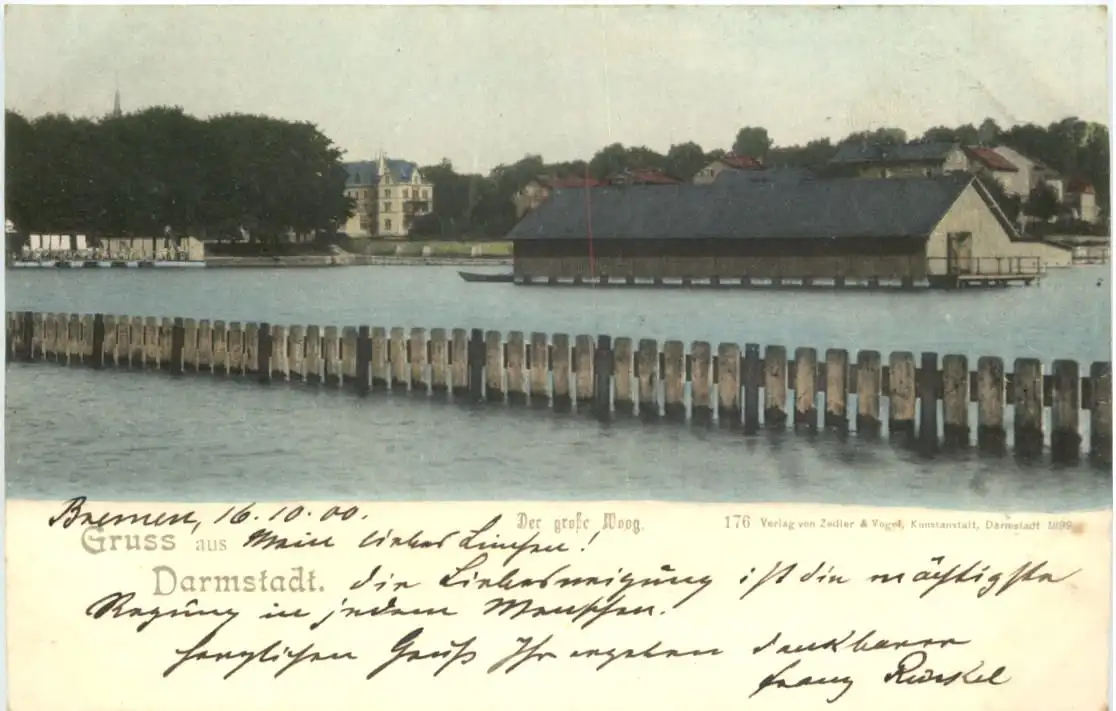 Der große Woog.
176 Verlag von Zedler & Vogel, Kunstanstalt, Darmstadt 1899
Gruss aus
Darmstadt.
Bremen, 16.10.00.
Mein liebes Linchen!
die Liebesneigung ist die mächtigste
Regung in jedem Menschen.
Herzlichen Gruß Ihr ergeben dankbarer
Franz